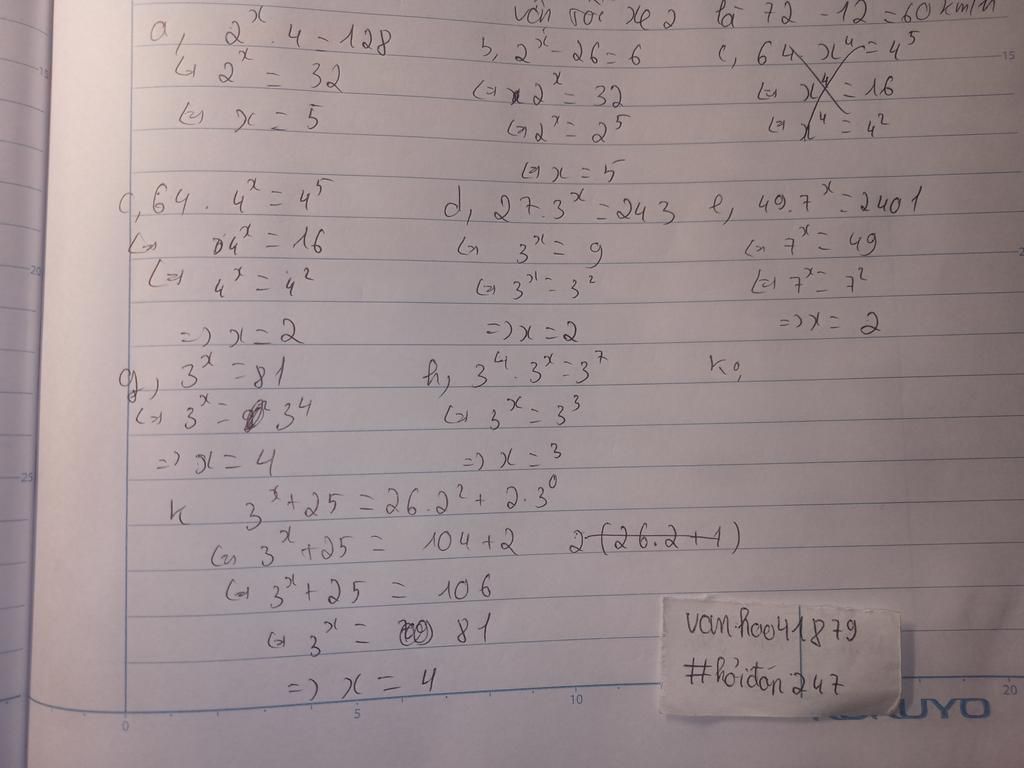 vận tốc xe 2 là 72 - 12 = 60 km/h
a, 2^x . 4 = 128
⇔ 2^x = 32
⇔ x = 5
b, 2^x - 26 = 6
⇔ 2^x = 32
⇔ 2^x = 2^5
⇔ x = 5
c, 64 x^4 = 4^5
⇔ x^4 = 16
⇔ x^4 = 4^2
c, 64 . 4^x = 4^5
⇔ 4^x = 16
⇔ 4^x = 4^2
=> x = 2
d, 27.3^x = 243
⇔ 3^x = 9
⇔ 3^x = 3^2
=> x = 2
e, 49.7^x = 2401
⇔ 7^x = 49
⇔ 7^x = 7^2
=> x = 2
g, 3^x = 81
⇔ 3^x = 3^4
=> x = 4
h, 3^4 . 3^x = 3^7
⇔ 3^x = 3^3
=> x = 3
k,
k 3^x + 25 = 26.2^2 + 2.3^0
⇔ 3^x + 25 = 104 + 2 2(26.2+1)
⇔ 3^x + 25 = 106
⇔ 3^x = 81
=> x = 4
vanhoo41879
#hỏiđáp247
15
20
25
0
5
10
20
KOKUYO